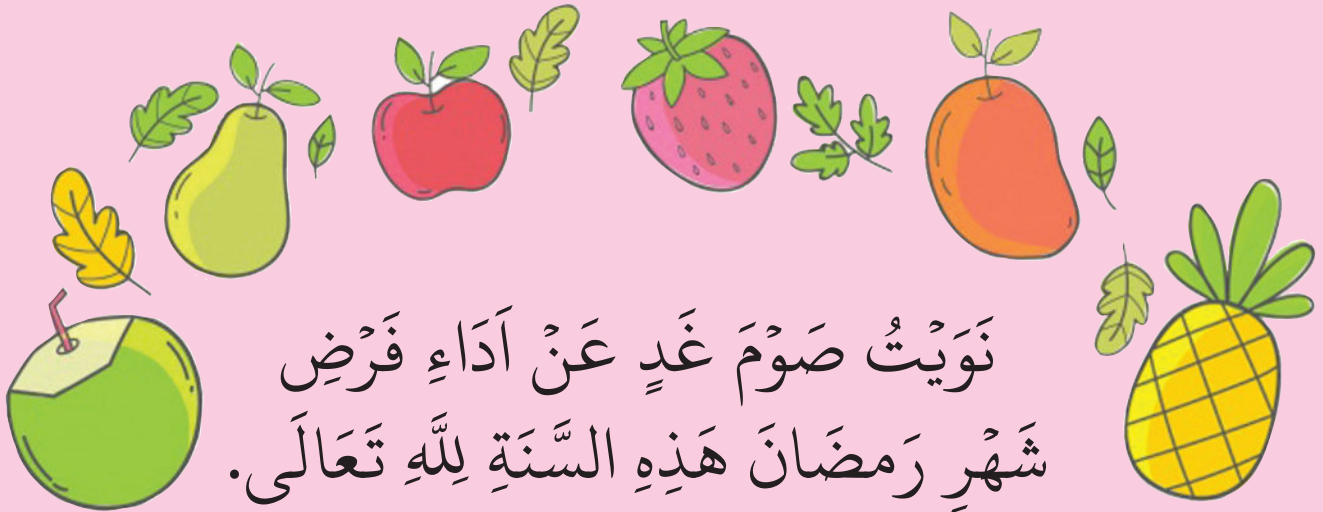 نَوَيْتُ صَوْمَ غَدٍ عَنْ اَدَاءِ فَرْضِ
شَهْرِ رَمضَانَ هَذِهِ السَّنَةِ لِلَّهِ تَعَالَى.